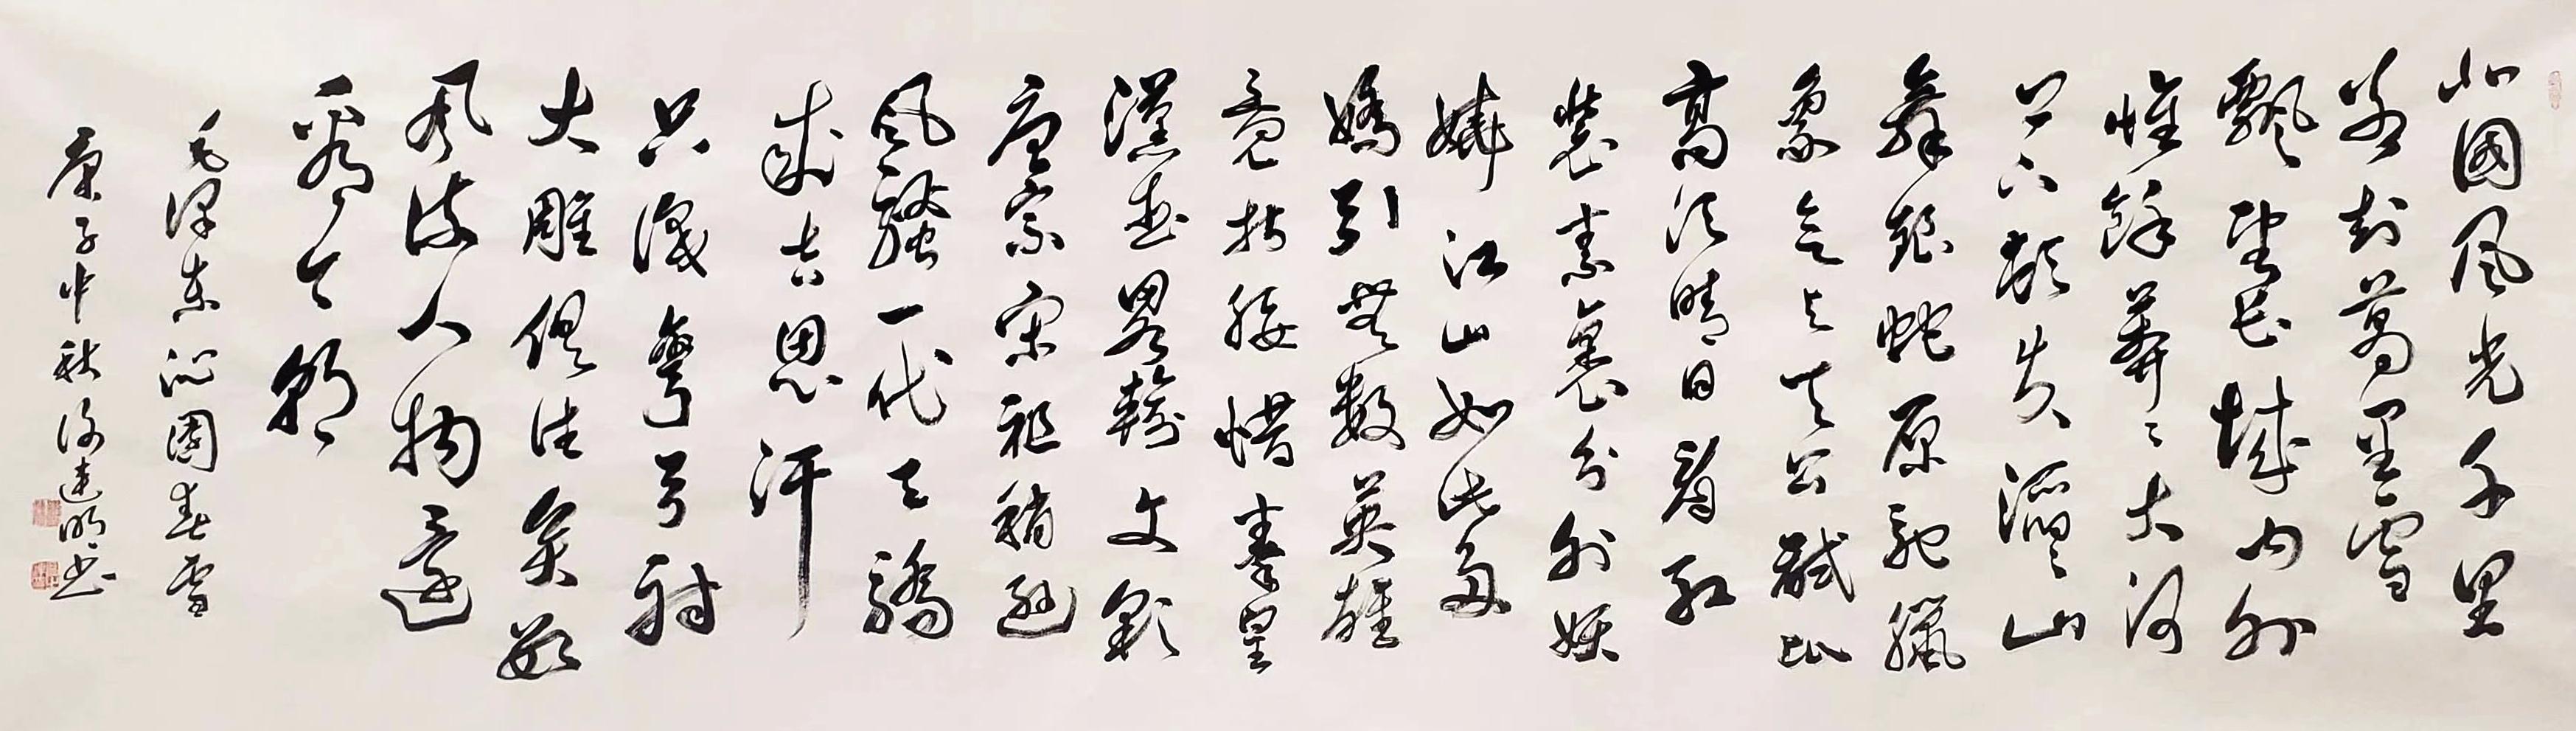 北國風光千里
冰封萬里雪
飄望長城內外
惟餘莽〻大河
上下頓失滔〻山
舞銀蛇原馳臘
象欲与天公試比
高須晴日看紅
裝素裹分外妖
嬈江山如此多
嬌引無數英雄
竟折腰惜秦皇
漢武畧輸文彩
唐宗宋祖稍遜
風騷一代天驕
成吉思汗
只識彎弓射
大雕俱往矣數
風流人物還
看今朝
毛澤東沁園春雪
庚子中秋建明书